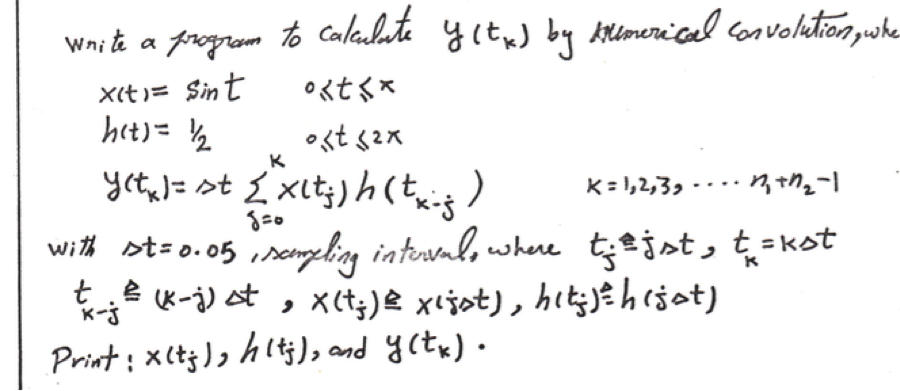 Write a program to calculate y(tₖ) by numerical convolution, whe
x(t) = sin t 0≤t≤π
h(t) = ½ 0≤t≤2π
y(tₖ) = Δt ∑ⱼ₌₀ᴷ x(tⱼ) h(tₖ₋ⱼ) K=1,2,3, .... n₁+n₂-1
with Δt=0.05, sampling interval, where tⱼ ≙ jΔt, tₖ = KΔt
tₖ₋ⱼ ≙ (K-j) Δt, x(tⱼ) ≙ x(jΔt), h(tⱼ) ≙ h(jΔt)
Print: x(tⱼ), h(tⱼ), and y(tₖ).